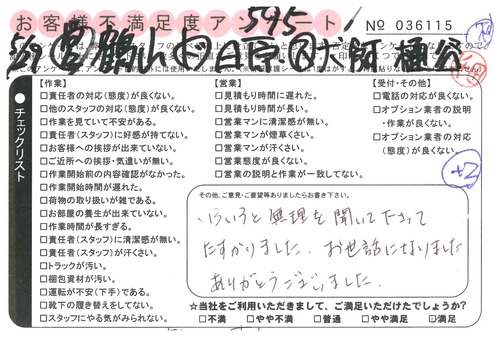 お客様不満足度アンケート
545
No 036115
【作業】
□責任者の対応(態度)が良くない。
□他のスタッフの対応(態度)が良くない。
□作業を見ていて不安がある。
□責任者(スタッフ)に好感が持てない。
□お客様への挨拶が出来ていない。
□ご近所への挨拶・気遣いが無い。
□作業開始前の内容確認がなかった。
□作業開始時間が遅れた。
□荷物の取り扱いが雑である。
□お部屋の養生が出来ていない。
□作業時間が長すぎる。
□責任者(スタッフ)に清潔感が無い。
□責任者(スタッフ)が汗くさい。
□トラックが汚い。
□梱包資材が汚い。
□運転が不安(下手)である。
□靴下の履き替えをしてない。
□スタッフにやる気がみられない。
【営業】
□見積もり時間に遅れた。
□見積もり時間が長い。
□営業マンに清潔感が無い。
□営業マンが煙草くさい。
□営業マンが汗くさい。
□営業態度が良くない。
□営業の説明と作業が一致してない。
【受付・その他】
□電話の対応が良くない。
□オプション業者の説明
・作業が良くない。
□オプション業者の対応
(態度)が良くない。
チェックリスト
その他、ご意見・ご要望等ありましたらお書き下さい。
いろいろと無理を聞いて下さって
たすかりました。お世話になりました
ありがとうございました。
☆当社をご利用いただきまして、ご満足いただけたでしょうか?
□不満 □やや不満 □普通 □やや満足 ☑満足